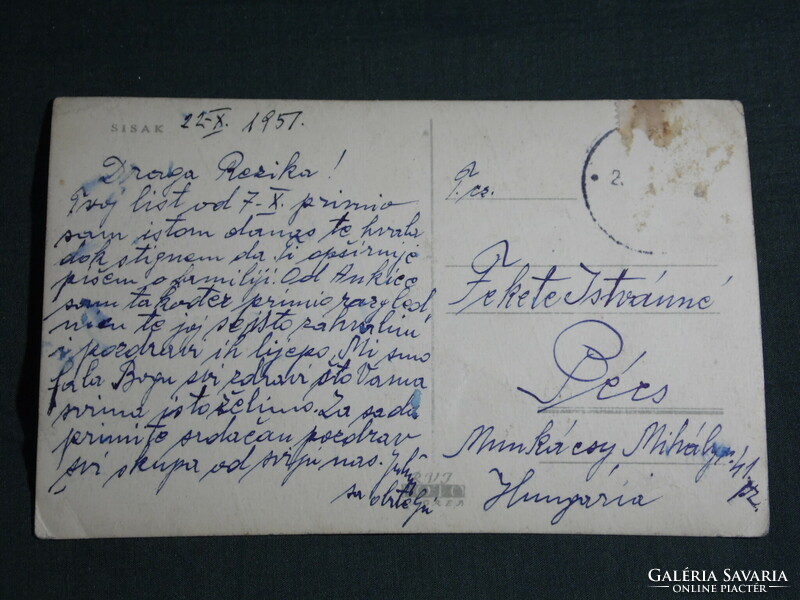 SISAK 22-X. 1951.
Draga Rezika!
Tvoj list od 7-X. primio
sam istom danas te hvala
dok stignem da ti opširnije
pišem o familiji. Od Ankice
sam također primio razgled
nicu te joj se isto zahvalim
i pozdravi ih lijepo. Mi smo
fala Bogu svi zdravi što Vama
svima isto želimo. Za sada
primite srdačan pozdrav
svi skupa od sviju nas.
sa obitelji
Fekete Istvánné
Pécs
Munkácsy Mihály u. 41
Hungária
2.
GALÉRIA SAVARIA
ONLINE PIACTÉR